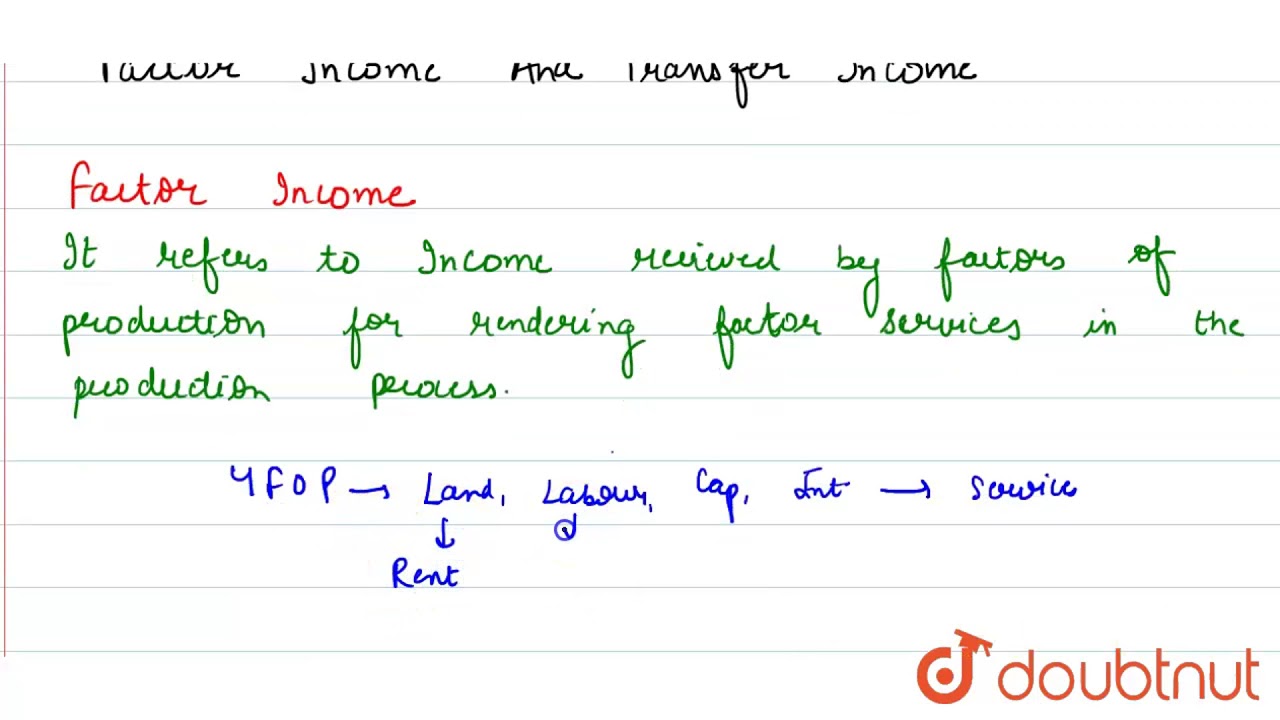 Factor Income And Transfer Income
Factor Income
It refers to Income received by factors of
production for rendering factor services in the
production process.
4 FOP → Land, Labour, Cap, Ent → Services
↓
Rent
doubtnut